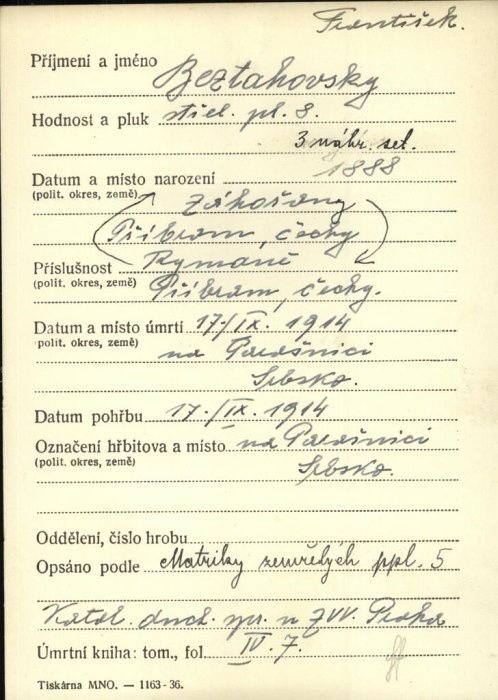 František.
Příjmení a jméno Beztahovsky
Hodnost a pluk střel. pl. 8.
3 náhr. set.
Datum a místo narození 1888
(polit. okres, země) Záhořany
Příbram, čechy
Příslušnost Rymaně
(polit. okres, země) Příbram, čechy.
Datum a místo úmrtí 17/IX. 1914
(polit. okres, země) na Parašnici
Srbsko.
Datum pohřbu 17./IX. 1914
Označení hřbitova a místo na Parašnici
(polit. okres, země) Srbsko.
Oddělení, číslo hrobu
Opsáno podle Matriky zemřelých ppl. 5
Katol. duch. spr. u ZVV. Praha
Úmrtní kniha: tom., fol. IV. 7.
Tiskárna MNO. — 1163-36.